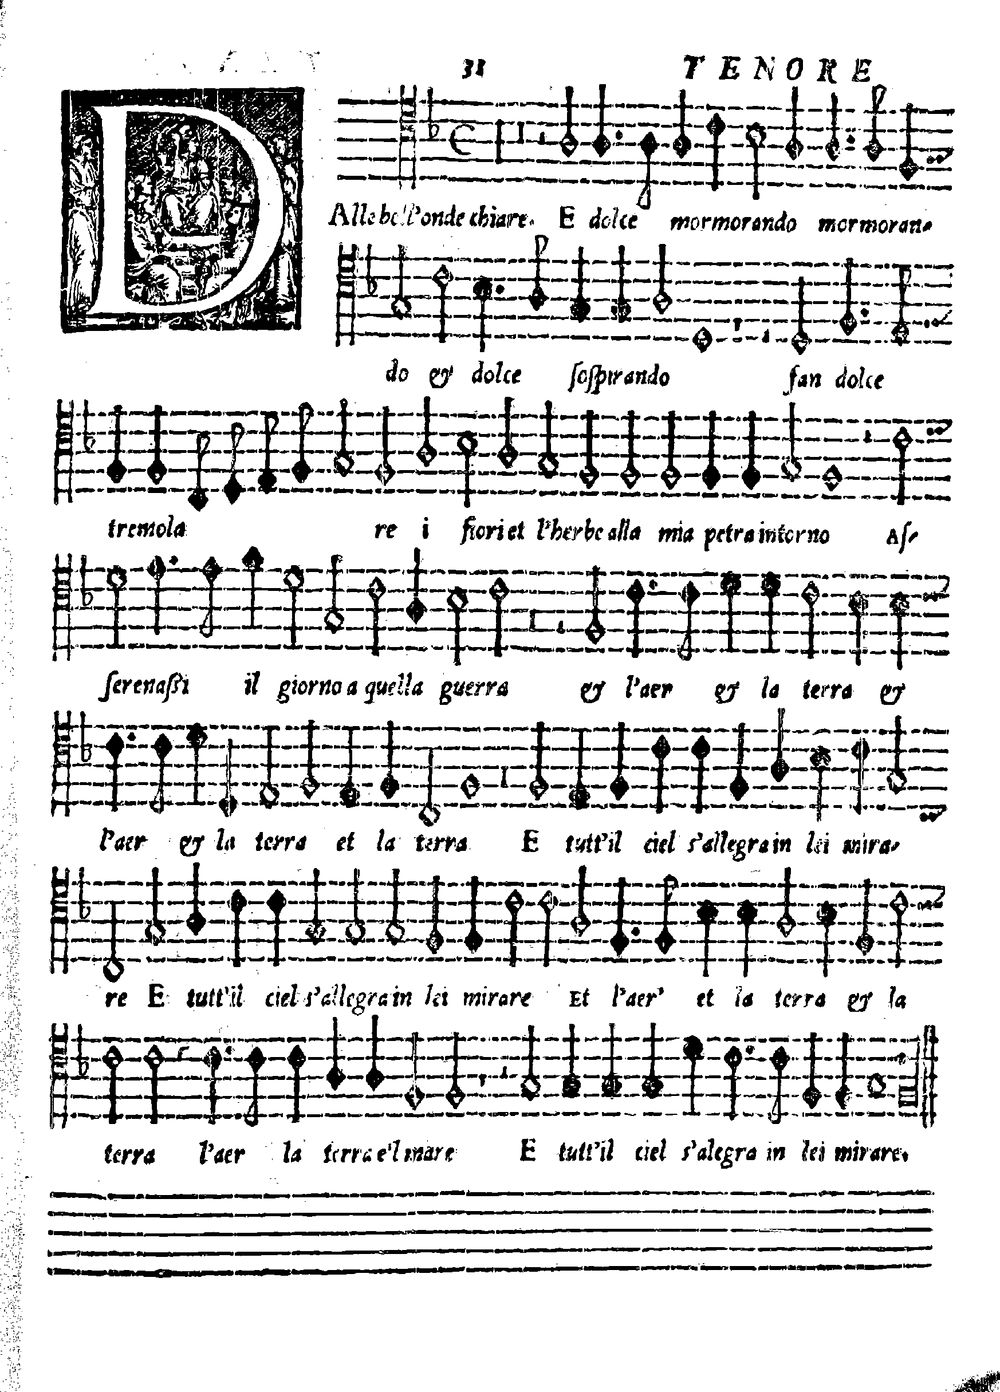 31 TENORE
DAlle bell'onde chiare. E dolce mormorando mormoran-
do & dolce sospirando fan dolce
tremola re i fiori et l'herbe alla mia petra intorno As-
serenassi il giorno a quella guerra & l'aer & la terra &
l'aer & la terra et la terra E tutt'il ciel s'allegra in lei mira-
re E tutt'il ciel s'allegra in lei mirare Et l'aer' et la terra & la
terra l'aer la terra e'l mare E tutt'il ciel s'alegra in lei mirare.